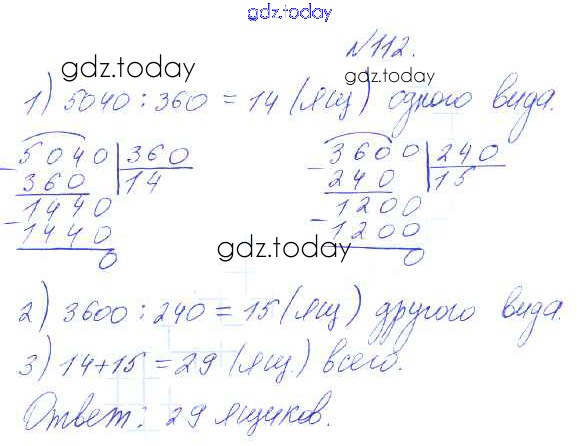 gdz.today
№112.
gdz.today
gdz.today
1) 5040 : 360 = 14 (ящ) одного вида.
5040 | 360
360 | 14
1440
1440
0
3600 | 240
240 | 15
1200
1200
0
gdz.today
2) 3600 : 240 = 15 (ящ) другого вида.
3) 14+15 = 29 (ящ.) всего.
Ответ: 29 ящиков.